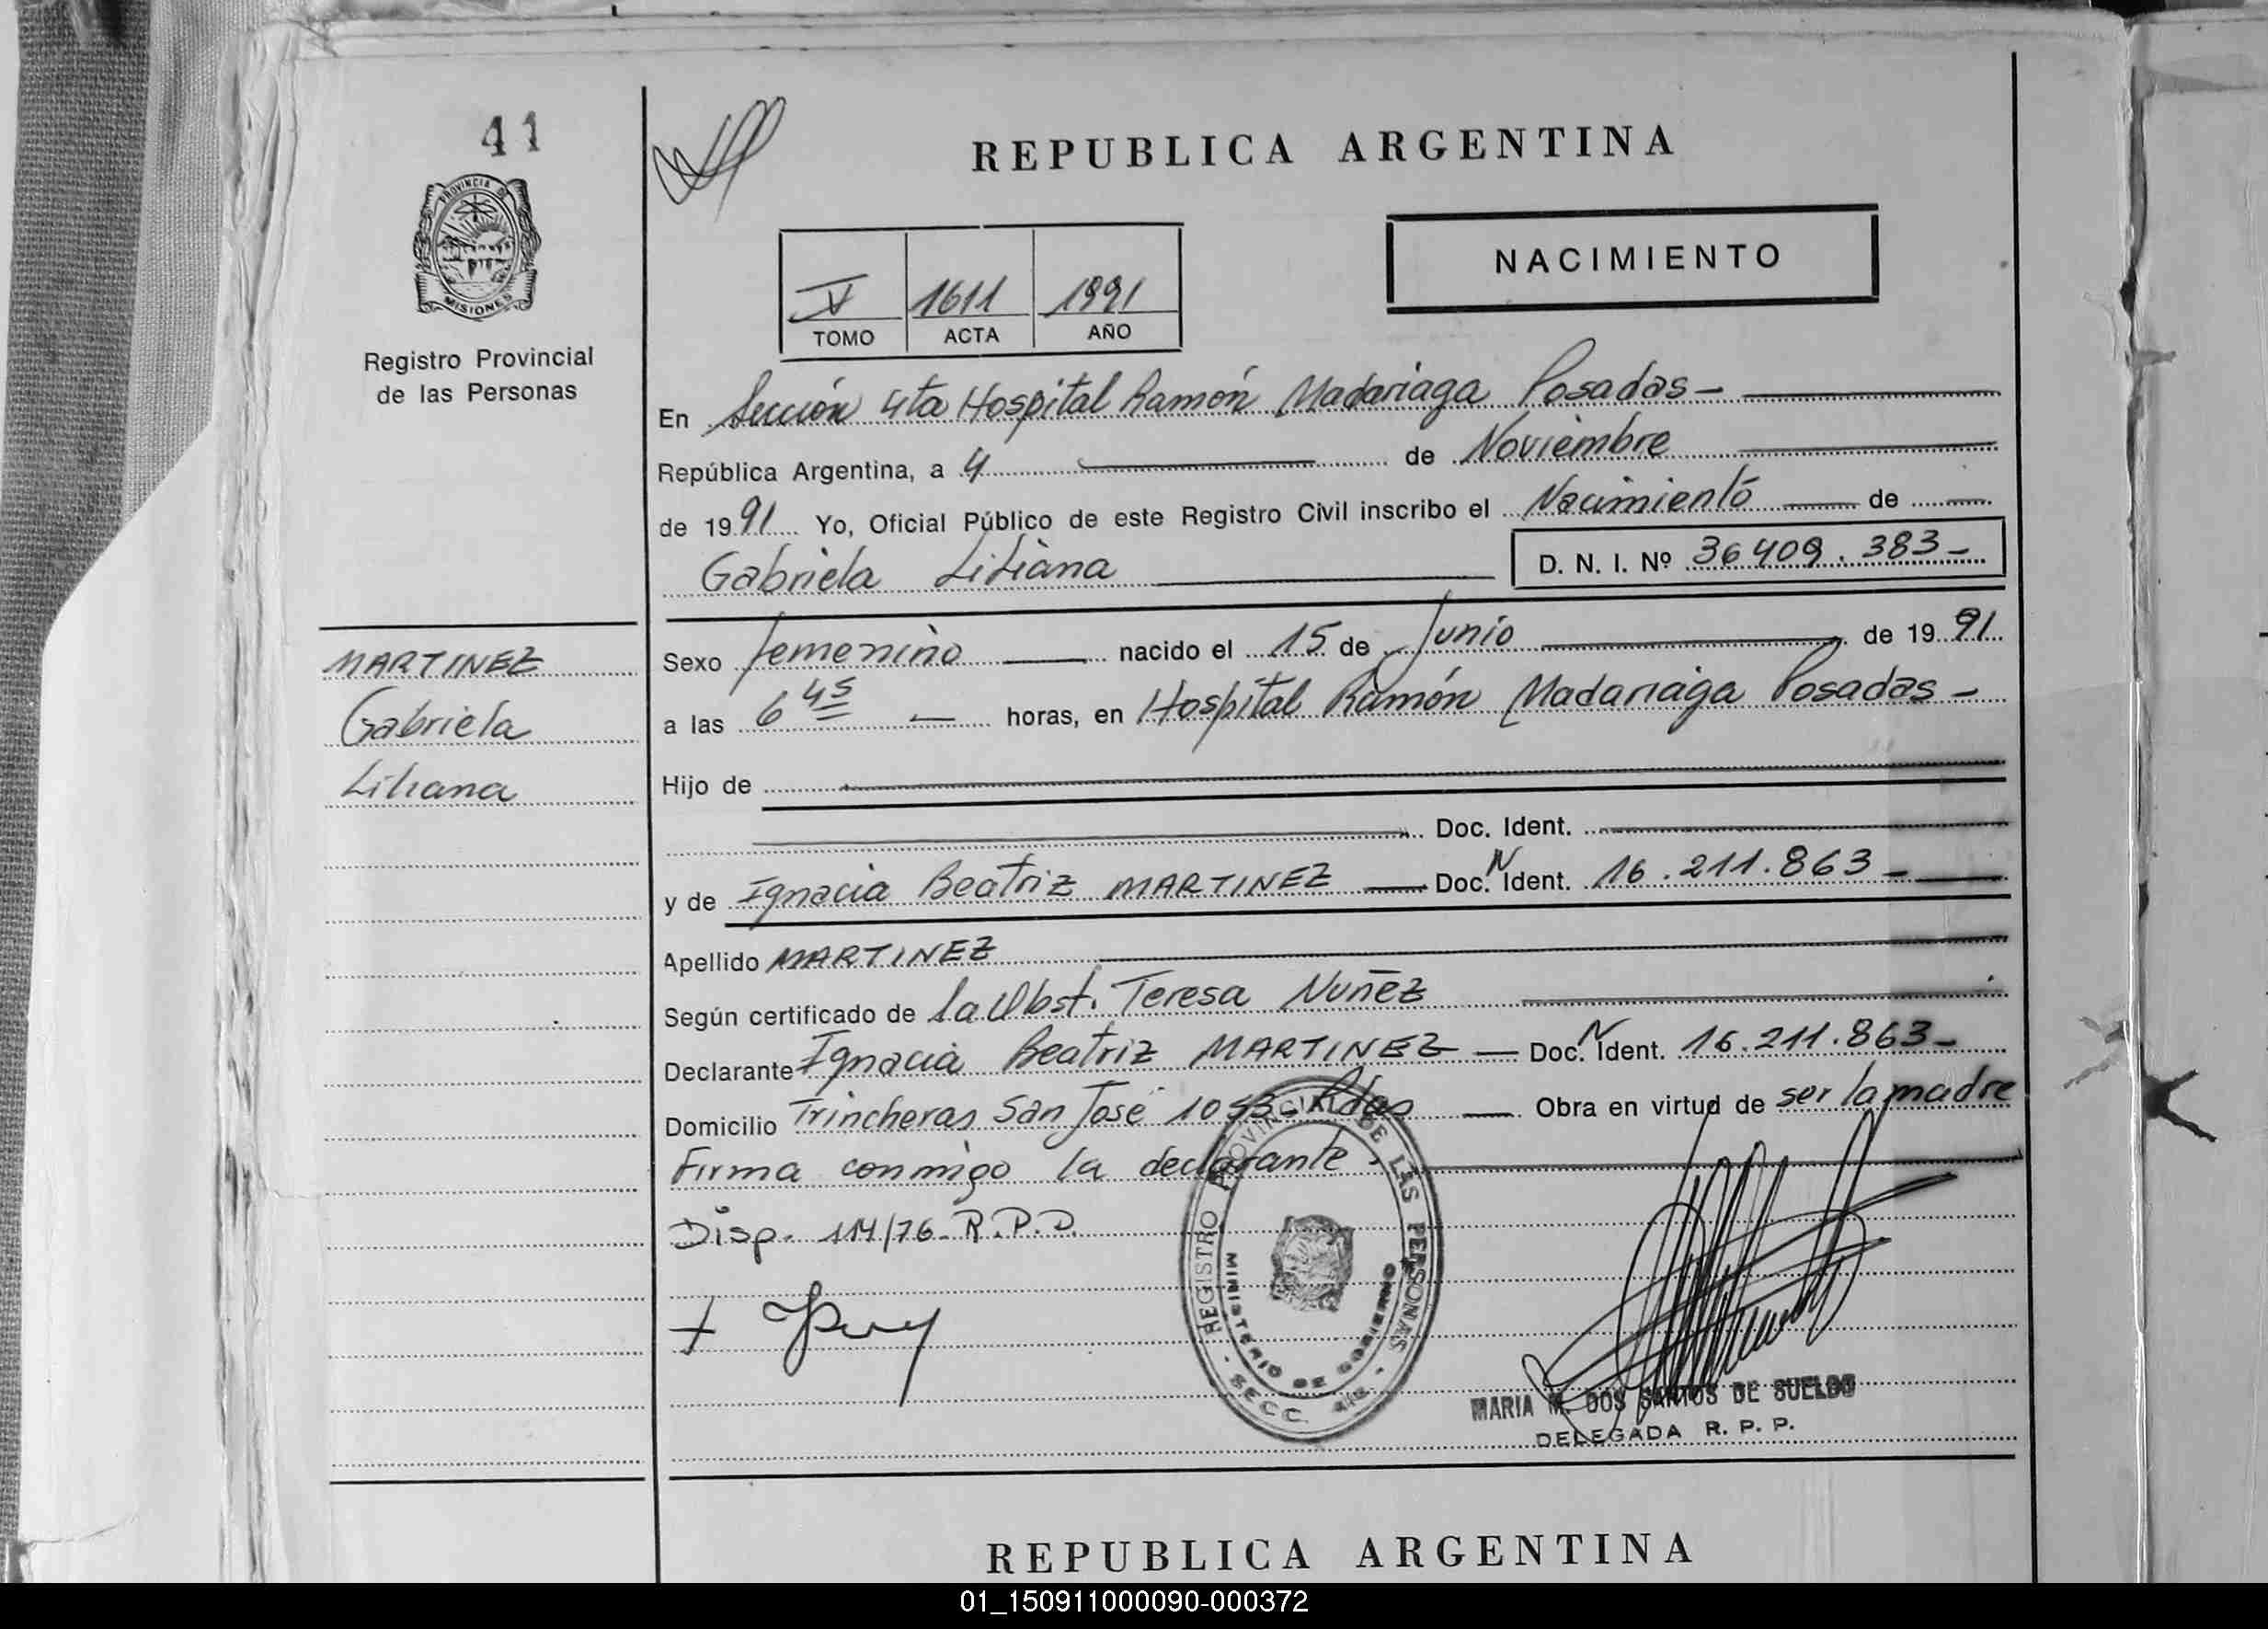 41
PROVINCIA DE
MISIONES
Registro Provincial
de las Personas
REPUBLICA ARGENTINA
NACIMIENTO
V 1611 1991
TOMO ACTA AÑO
En Sección 4ta Hospital Ramón Madariaga Posadas -
República Argentina, a 4 de Noviembre
de 1991 Yo, Oficial Público de este Registro Civil inscribo el Nacimiento de
Gabriela Liliana D. N. I. Nº 36409.383-
MARTINEZ
Gabriela
Liliana
Sexo femenino nacido el 15 de Junio de 1991
a las 6 45 horas, en Hospital Ramón Madariaga Posadas -
Hijo de
Doc. Ident.
y de Ignacia Beatriz MARTINEZ Doc. N Ident. 16.211.863-
Apellido MARTINEZ
Según certificado de la Obst. Teresa Nuñez
Declarante Ignacia Beatriz MARTINEZ - Doc. N Ident. 16.211.863-
Domicilio Trincheras San José 1053- Pdas Obra en virtud de ser la madre
Firma conmigo la declarante.
Disp. 114/76- R.P.P.
REGISTRO PROVINCIAL DE LAS PERSONAS - SECC. 4ta -
MINISTERIO DE GOBIERNO
MARIA M. DOS SANTOS DE SUELDO
DELEGADA R. P. P.
REPUBLICA ARGENTINA
01_150911000090-000372